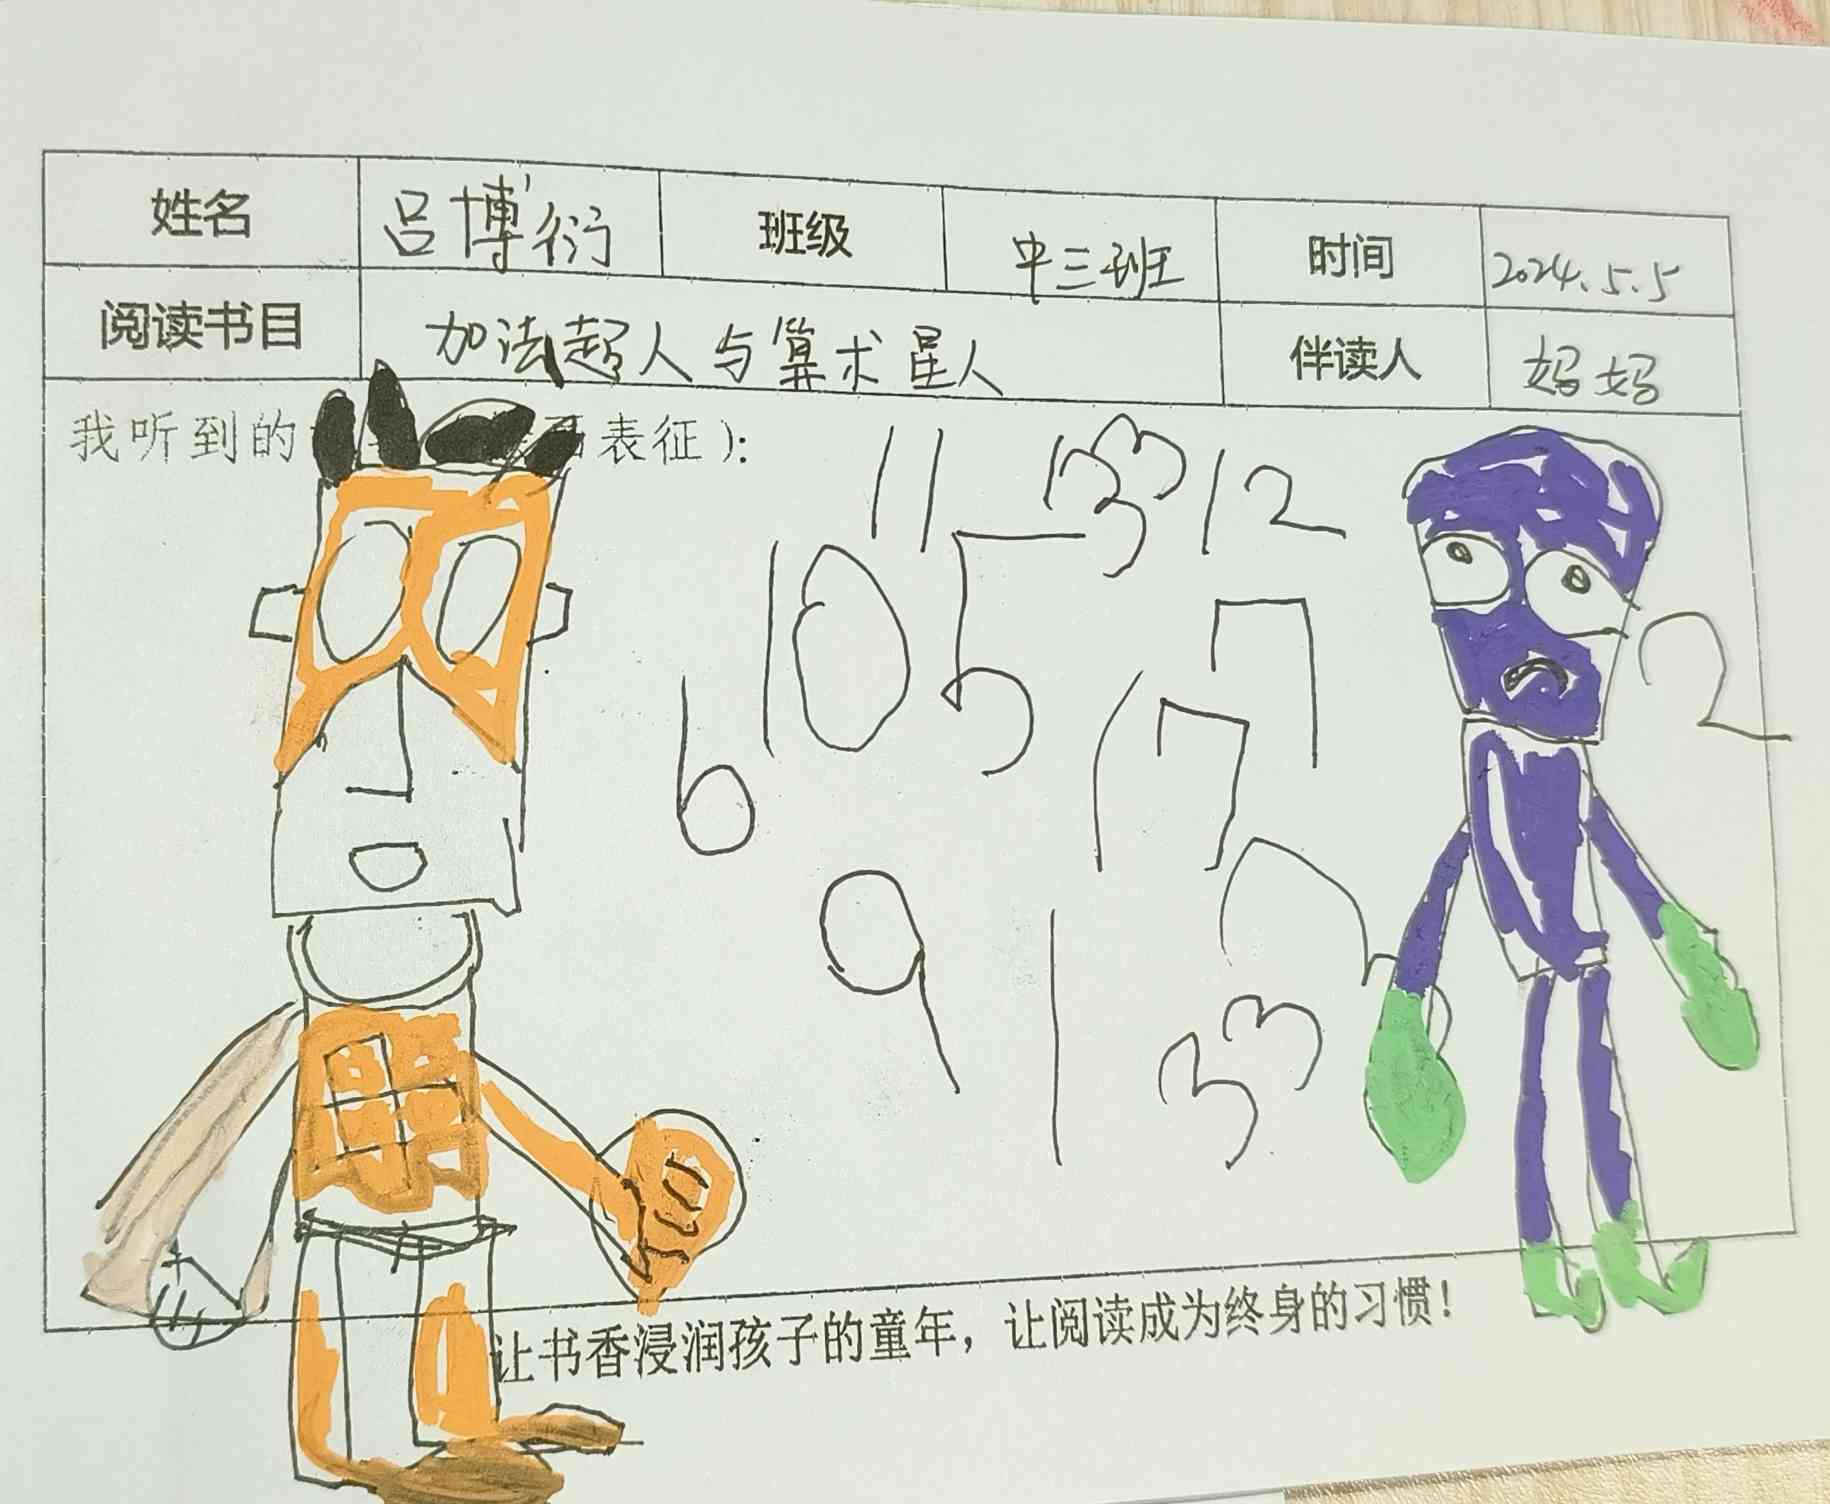 姓名 吕博衍 班级 中三班 时间 2024.5.5
阅读书目 加法超人与算术星人 伴读人 妈妈
我听到的 表征）：
11 12
10 5 7
2
6 17
9 1
33
让书香浸润孩子的童年，让阅读成为终身的习惯！